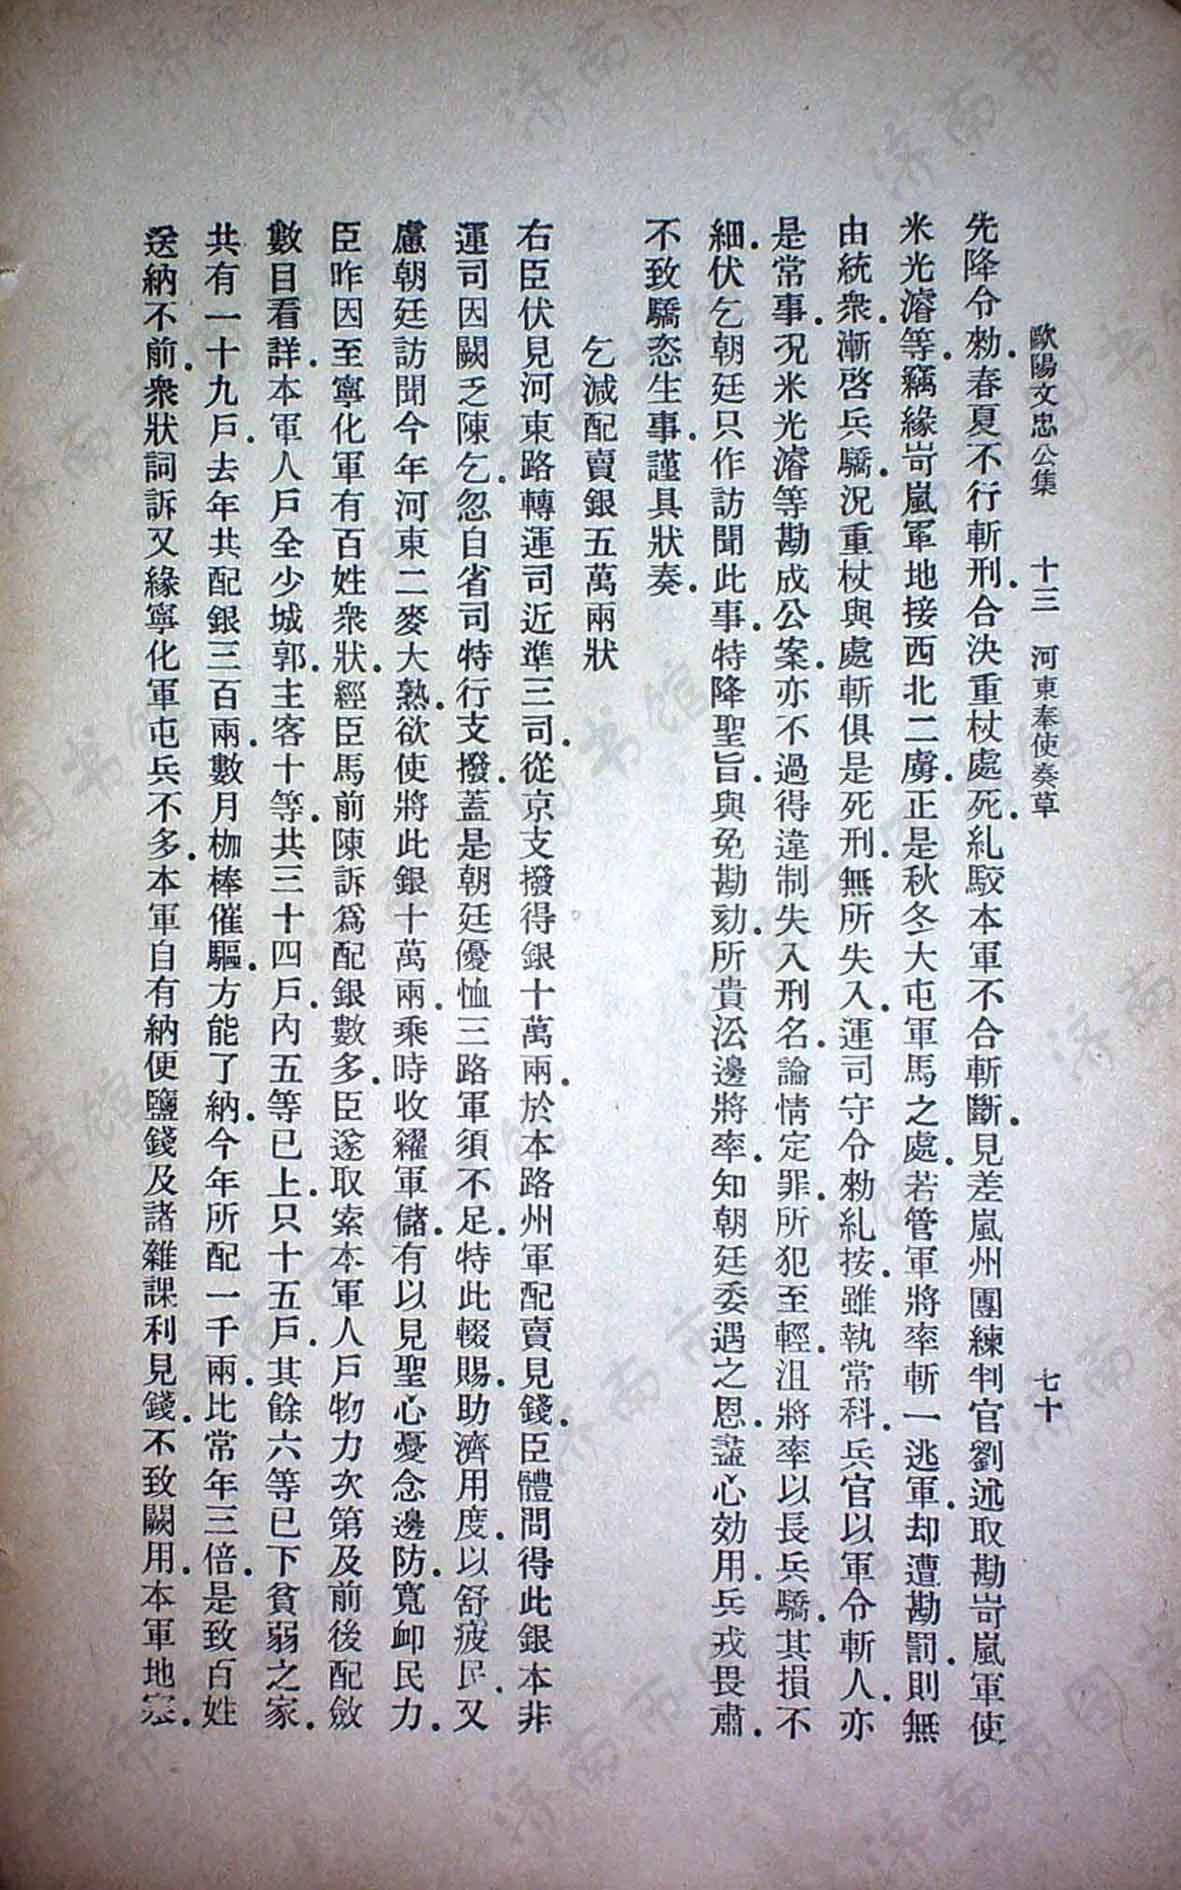 歐陽文忠公集　十三　河東奉使奏草　七十
先降令勑．春夏不行斬刑．合決重杖處死．糺駮本軍不合斬斷．見差嵐州團練判官劉述取勘岢嵐軍使
米光濬等．竊緣岢嵐軍地接西北二虜．正是秋冬大屯軍馬之處．若管軍將率斬一逃軍．却遭勘罰．則無
由統衆．漸啓兵驕．況重杖與處斬俱是死刑．無所失入．運司守令勑糺按．雖執常科．兵官以軍令斬人．亦
是常事．況米光濬等勘成公案．亦不過得違制失入刑名．論情定罪．所犯至輕．沮將率以長兵驕．其損不
細．伏乞朝廷只作訪聞此事．特降聖旨．與免勘劾．所貴沿邊將率．知朝廷委遇之恩．盡心効用．兵戎畏肅．
不致驕恣生事．謹具狀奏．
乞減配賣銀五萬兩狀
右臣伏見河東路轉運司近準三司．從京支撥得銀十萬兩．於本路州軍配賣見錢．臣體問得此銀本非
運司因闕乏陳乞．忽自省司特行支撥．蓋是朝廷優恤三路軍須不足．特此輟賜．助濟用度．以舒疲民．又
慮朝廷訪聞今年河東二麥大熟．欲使將此銀十萬兩．乘時收糴軍儲．有以見聖心憂念邊防．寬卹民力．
臣昨因至寧化軍有百姓衆狀．經臣馬前陳訴爲配銀數多．臣遂取索本軍人戶物力次第及前後配斂
數目看詳．本軍人戶全少城郭．主客十等．共三十四戶．內五等已上．只十五戶．其餘六等已下貧弱之家．
共有一十九戶．去年共配銀三百兩．數月枷棒催驅．方能了納．今年所配一千兩．比常年三倍．是致百姓
送納不前．衆狀詞訴又緣寧化軍屯兵不多．本軍自有納便鹽錢及諸雜課利見錢．不致闕用．本軍地寒．